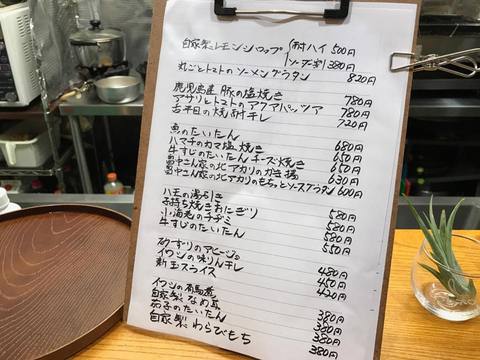 自家製レモンシロップ 耐ハイ 500円
ソーダ割 380円
丸ごとトマトのソーメングラタン 820円
鹿児島産 豚の塩焼き 780円
アサリとトマトのアクアパッツァ 780円
舌平目の焼耐干し 720円
魚のたいたん 680円
ハマチのカマ塩焼き 650円
牛すじのたいたんチーズ焼き 650円
畠中二人家の北アカリのかき揚 630円
畠中二人家の北アカリのもちっとソースグラタン 600円
ハモの湯引き 580円
子持ち焼きおにぎり 580円
小海老のチヂミ 580円
牛すじのたいたん 550円
砂ずりのアヒージョ 480円
イワシの味りん干し 450円
新玉スライス 420円
イワシの有馬煮 380円
自家製なめ茸 380円
茄子のたいたん 380円
自家製わらびもち 380円